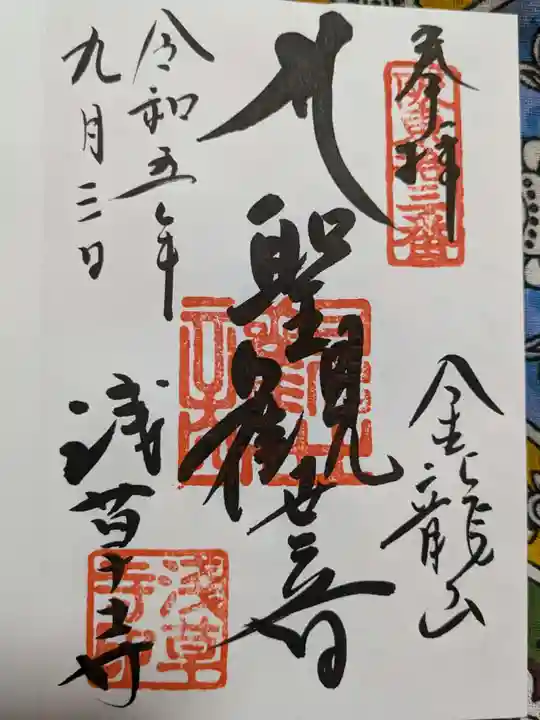 奉拝
坂東拾三番
金龍山
聖観世音
浅草寺
浅草寺印
令和五年
九月三日